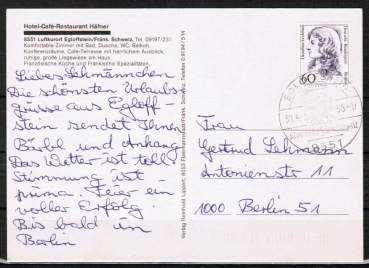 Hotel-Café-Restaurant Häfner
8551 Luftkurort Egloffstein/Fränk. Schweiz, Tel. 09197/230
Komfortable Zimmer mit Bad, Dusche, WC, Balkon,
Konferenzräume, Café-Terrasse mit herrlichem Ausblick,
ruhige, große Liegewiese am Haus.
Französische Küche und Fränkische Spezialitäten.
Liebes Lehmännchen
Die schönsten Urlaubs-
grüsse aus Egloff-
stein sendet Ihnen
Bärbel und Anhang
Das Wetter ist toll
Stimmung ist
prima. Feier ein
voller Erfolg.
Bis bald in
Berlin
Verlag Reinhold Lippert, 8553 Ebermannstadt/Fränk. Schweiz, Telefon 09194/514
60
8551
Frau
Gertrud Lehmann
Antonienstr 11
1000 Berlin 51